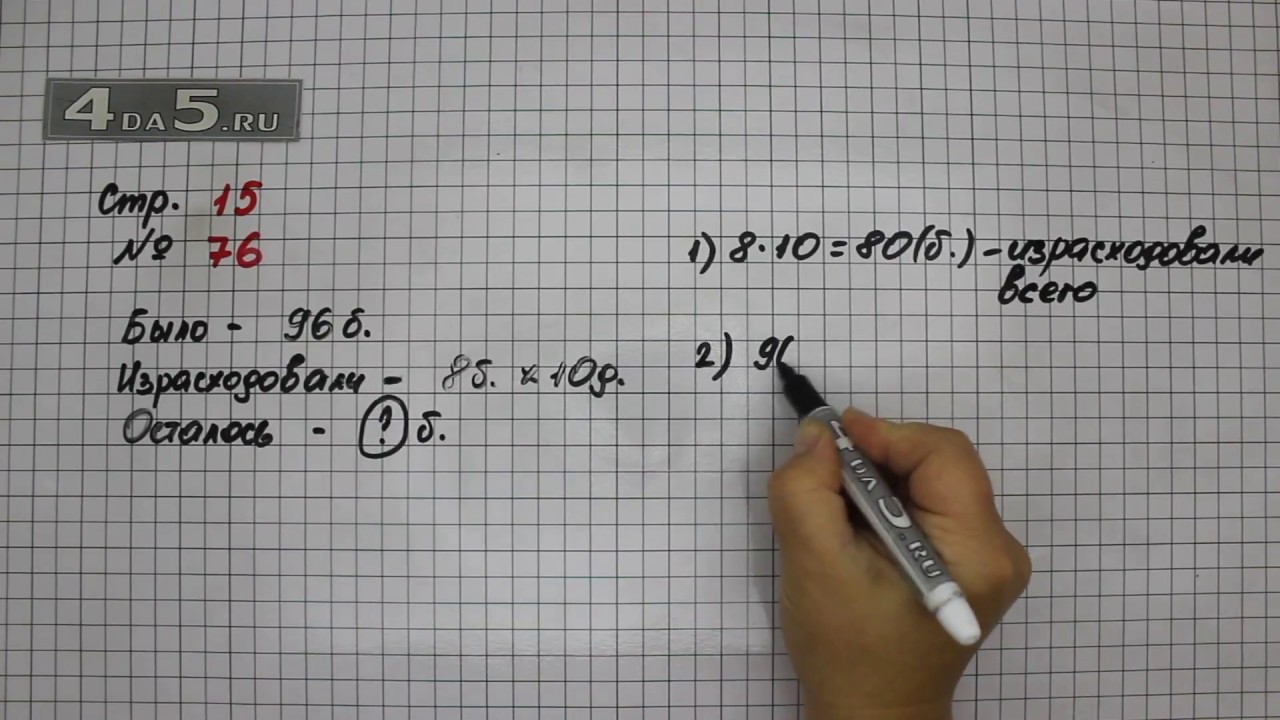 4DA5.RU
Стр. 15
№ 76
Было - 96 б.
Израсходовали - 8б. × 10д.
Осталось - ? б.
1) 8·10=80(б.) - израсходовали
всего
2) 9
4DA5.RU